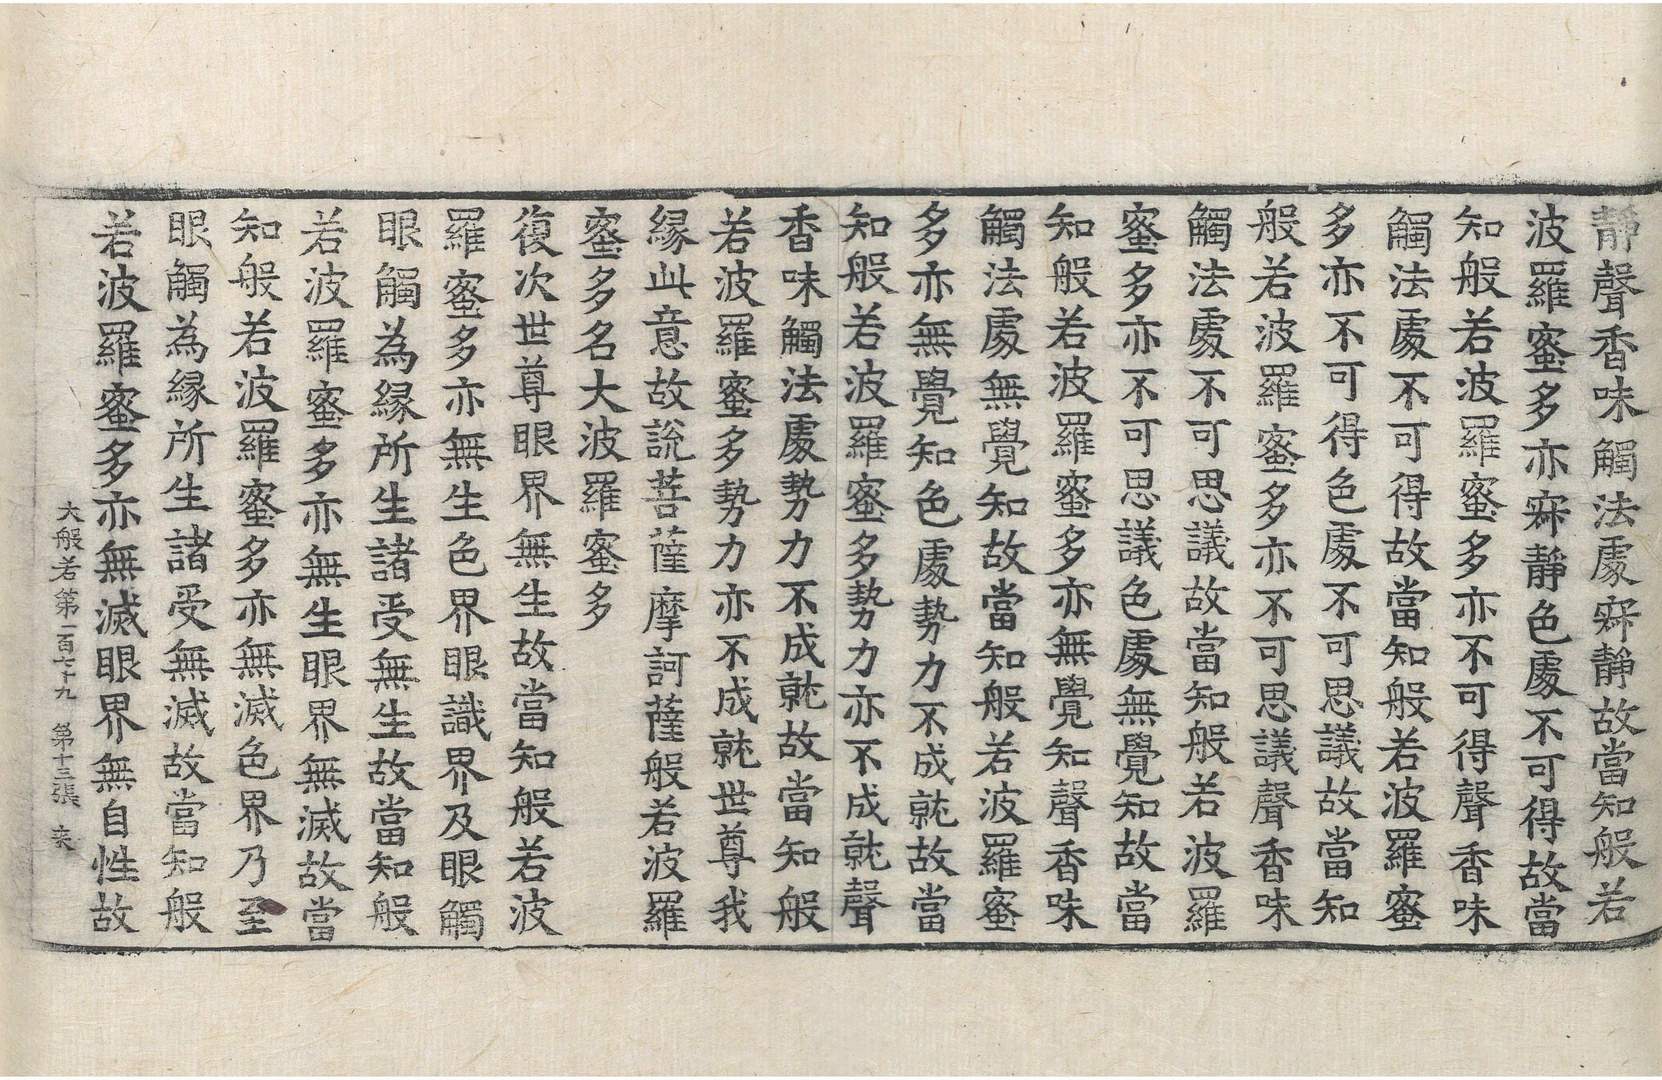 靜聲香味觸法處寂靜故當知般若
波羅蜜多亦寂靜色處不可得故當
知般若波羅蜜多亦不可得聲香味
觸法處不可得故當知般若波羅蜜
多亦不可得色處不可思議故當知
般若波羅蜜多亦不可思議聲香味
觸法處不可思議故當知般若波羅
蜜多亦不可思議色處無覺知故當
知般若波羅蜜多亦無覺知聲香味
觸法處無覺知故當知般若波羅蜜
多亦無覺知色處勢力不成就故當
知般若波羅蜜多勢力亦不成就聲
香味觸法處勢力不成就故當知般
若波羅蜜多勢力亦不成就世尊我
緣此意故說菩薩摩訶薩般若波羅
蜜多名大波羅蜜多
復次世尊眼界無生故當知般若波
羅蜜多亦無生色界眼識界及眼觸
眼觸為緣所生諸受無生故當知般
若波羅蜜多亦無生眼界無滅故當
知般若波羅蜜多亦無滅色界乃至
眼觸為緣所生諸受無滅故當知般
若波羅蜜多亦無滅眼界無自性故
大般若第一百七十九 第十三張 来